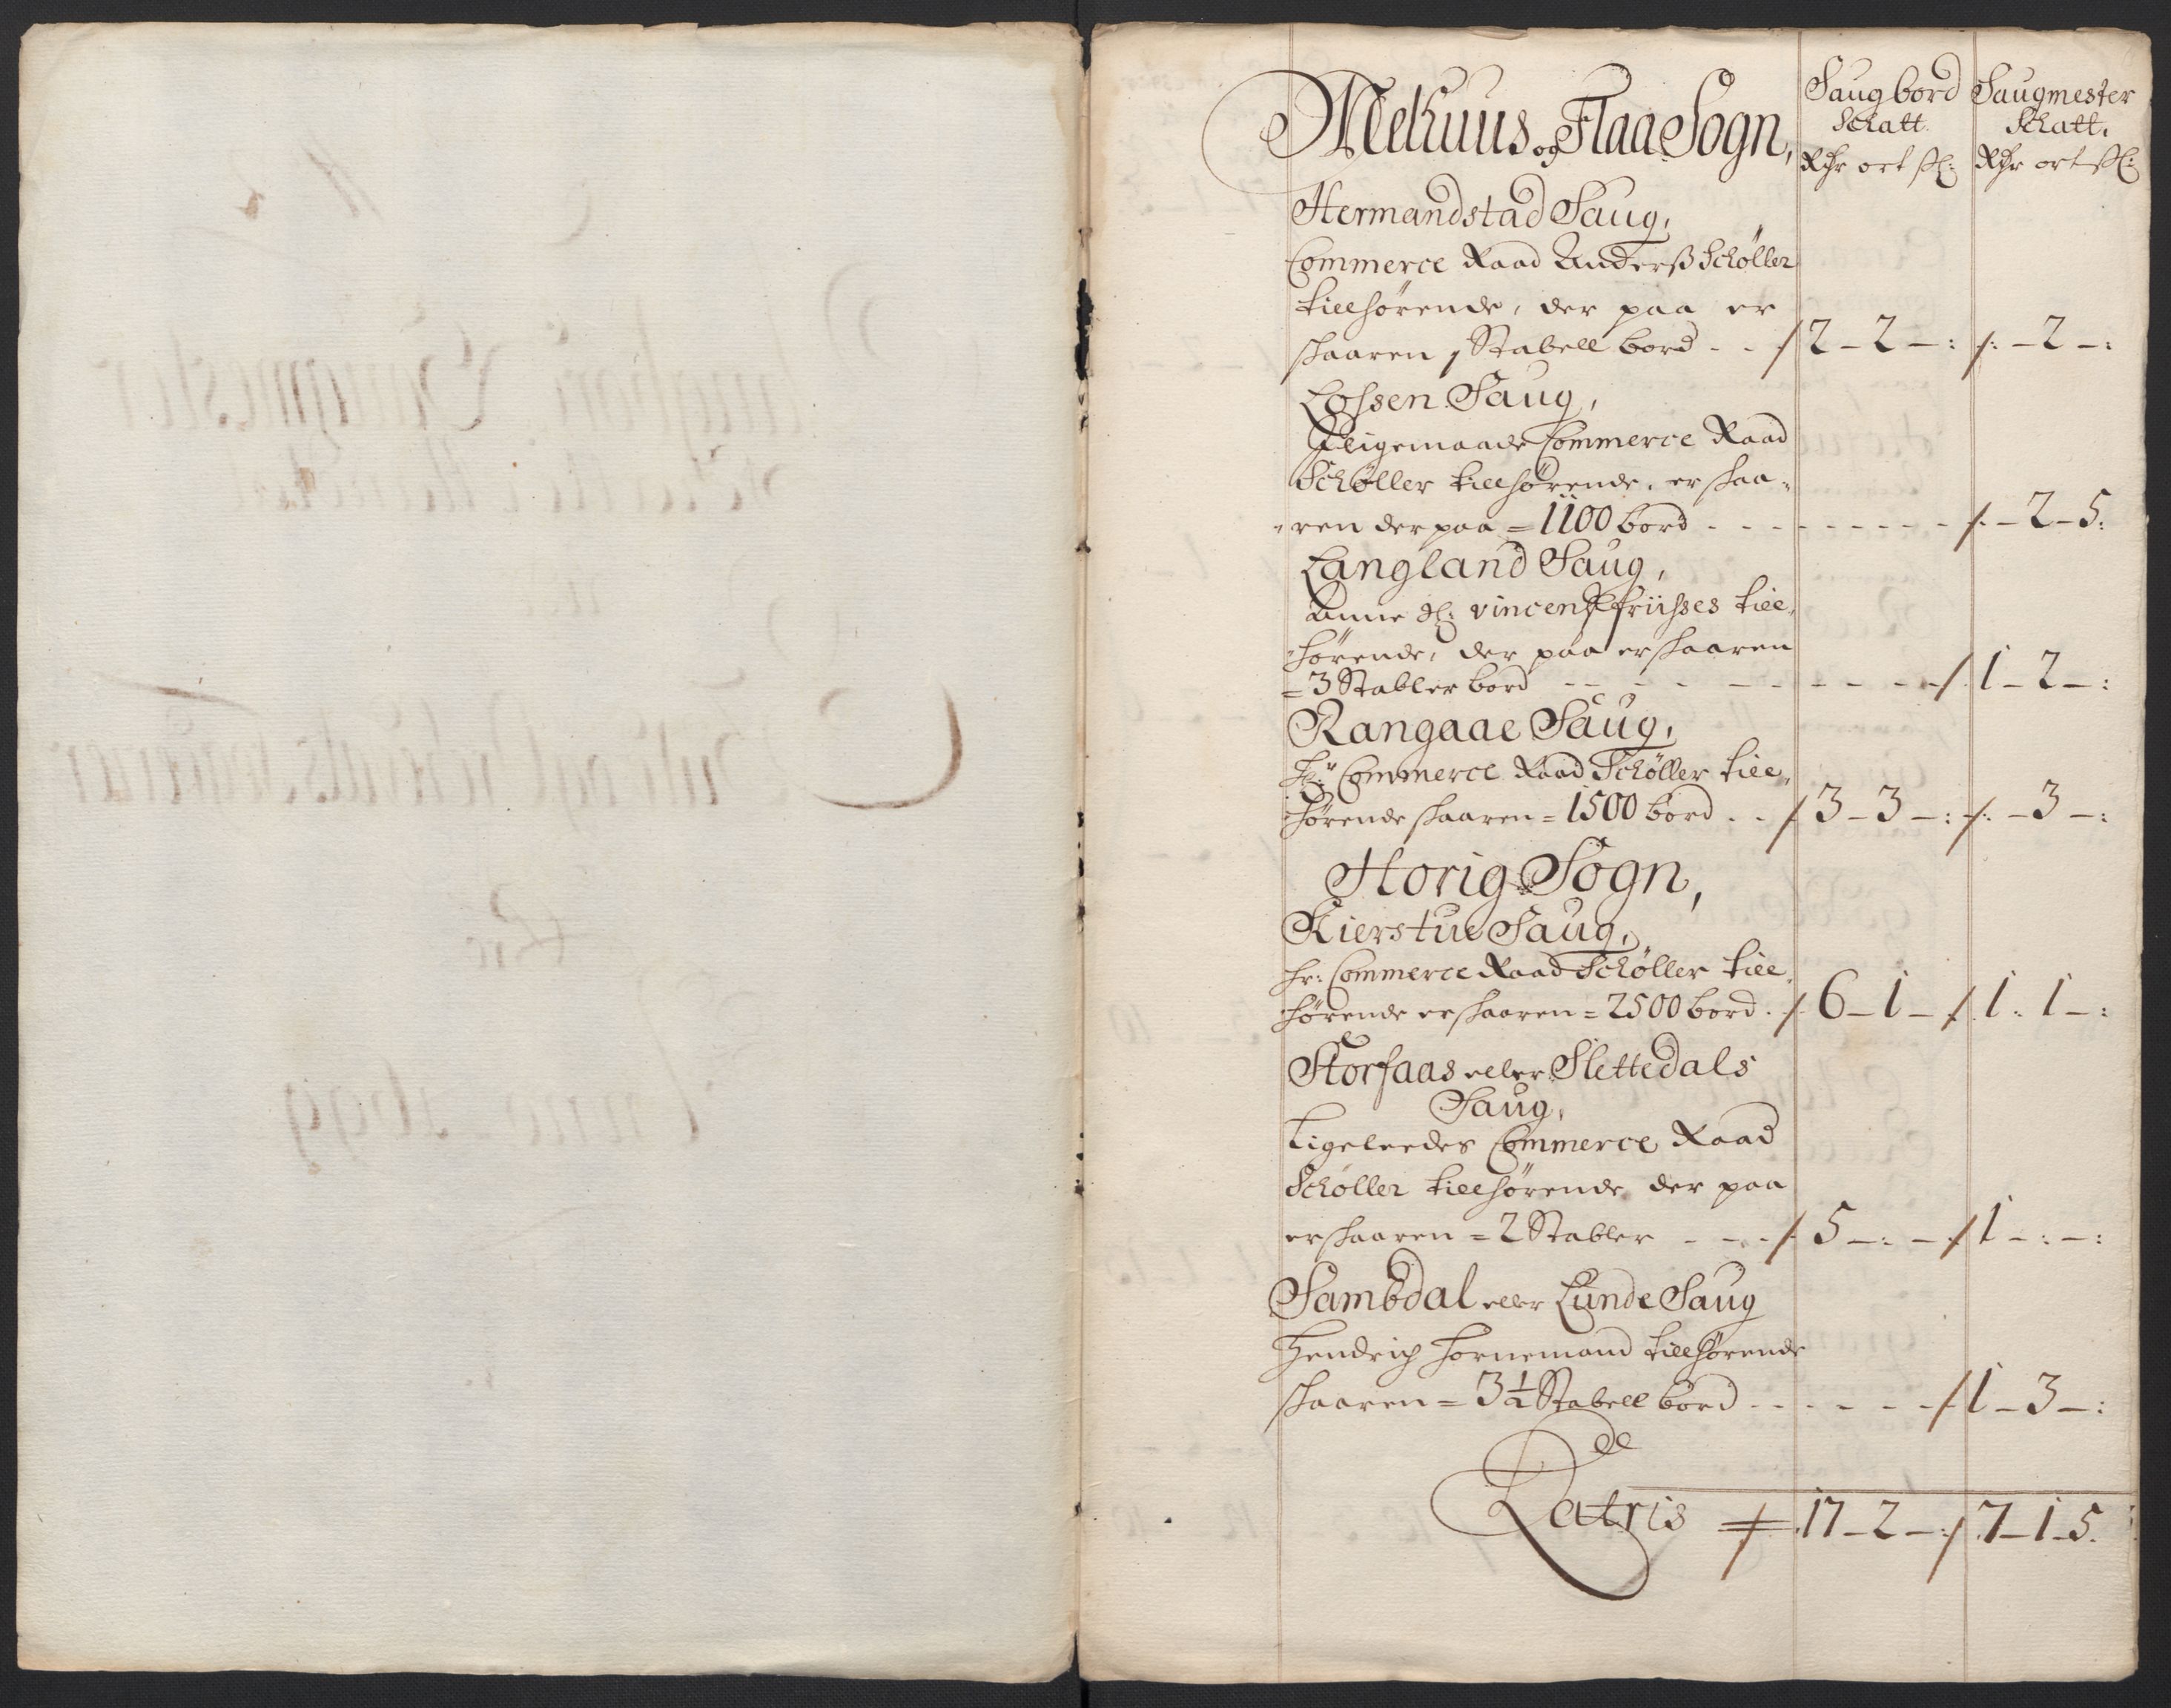 Melhuus og Flaa Sogn,
Saugbord Schatt. Rdr ort ß:
Saugmester Schatt. Rdr ort ß:
Hermandstad Saug,
Commerce Raad Anderß Schøller
tillhørende, der paa er
skaaren 1 Stabell bord - - 2 - 2 - : : - 2 - :
Lossen Saug,
Jligemaade Commerce Raad
Schøller tillhørende, er skaa-
ren der paa = 1100 bord - - - : - 2 - 5:
Langland Saug,
Anne Sl: vincentz friisses till-
hørende, der paa er skaaren
= 3 Stabler bord - - - 1 - 2 - :
Rangaae Saug,
Hr: Commerce Raad Schøller till-
hørende skaaren = 1500 bord - - 3 - 3 - : : - 3 - :
Horig Sogn,
Kierstue Saug,
Hr: Commerce Raad Schøller till-
hørende er skaaren = 2500 bord - 6 - 1 - 1 : 1 - :
Storfaas eller Slettedals
Saug,
Ligeleedes Commerce Raad
Schøller tillhørende, der paa
er skaaren = 2 Stabler - - - 5 - : - 1 - : - :
Sambdal eller Lunde Saug
Hendrich Hornemand tillhørende
skaaren = 3½ Stabell bord - - - 1 - 3 - :
Latris 17 - 2 - : 7 - 1 - 5.